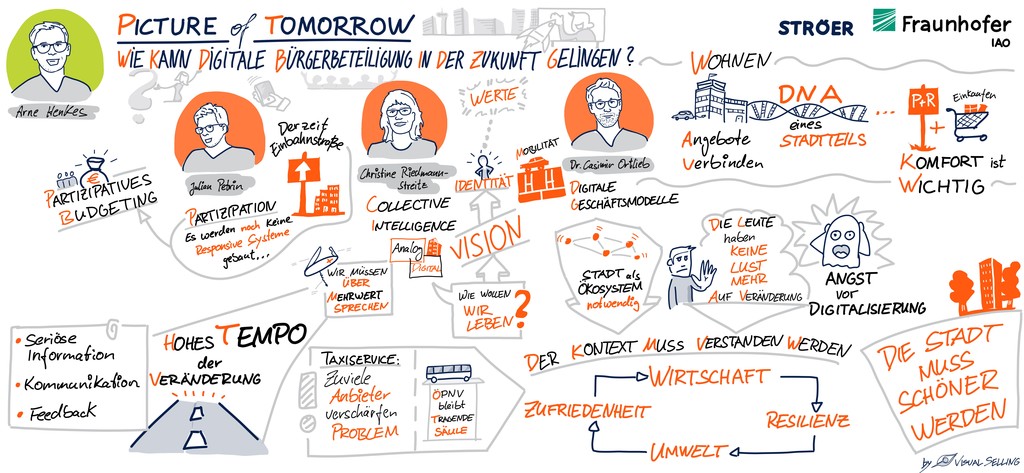 PICTURE of TOMORROW
WIE KANN DIGITALE BÜRGERBETEILIGUNG IN DER ZUKUNFT GELINGEN?
STRÖER
Fraunhofer
IAO
Arne Henkes
WOHNEN
DNA
eines
STADTTEILS
Angebote
Verbinden
...
P+R
+
Einkaufen
KOMFORT ist
WICHTIG
PARTIZIPATIVES
BUDGETING
€
Julian Petrin
Derzeit
Einbahnstraße
PARTIZIPATION
Es werden noch keine
Responsive Systeme
gebaut...
Christine Riedmann-
Streitz
COLLECTIVE
INTELLIGENCE
Analog
DIGITAL
WERTE
IDENTITÄT
VISION
MOBILITÄT
Dr. Casimir Ortlieb
DIGITALE
GESCHÄFTSMODELLE
WIR MÜSSEN
ÜBER
MEHRWERT
SPRECHEN
WIE WOLLEN
WIR
LEBEN?
STADT als
ÖKOSYSTEM
notwendig
DIE LEUTE
haben
KEINE
LUST
MEHR
AUF VERÄNDERUNG
ANGST
vor
DIGITALISIERUNG
• Seriöse
Information
• Kommunikation
• Feedback
HOHES TEMPO
der
VERÄNDERUNG
TAXISERVICE:
Zuviele
Anbieter
verschärfen
PROBLEM
ÖPNV
bleibt
TRAGENDE
SÄULE
DER KONTEXT MUSS VERSTANDEN WERDEN
WIRTSCHAFT
ZUFRIEDENHEIT
RESILIENZ
UMWELT
DIE STADT
MUSS
SCHÖNER
WERDEN
by VISUAL SELLING